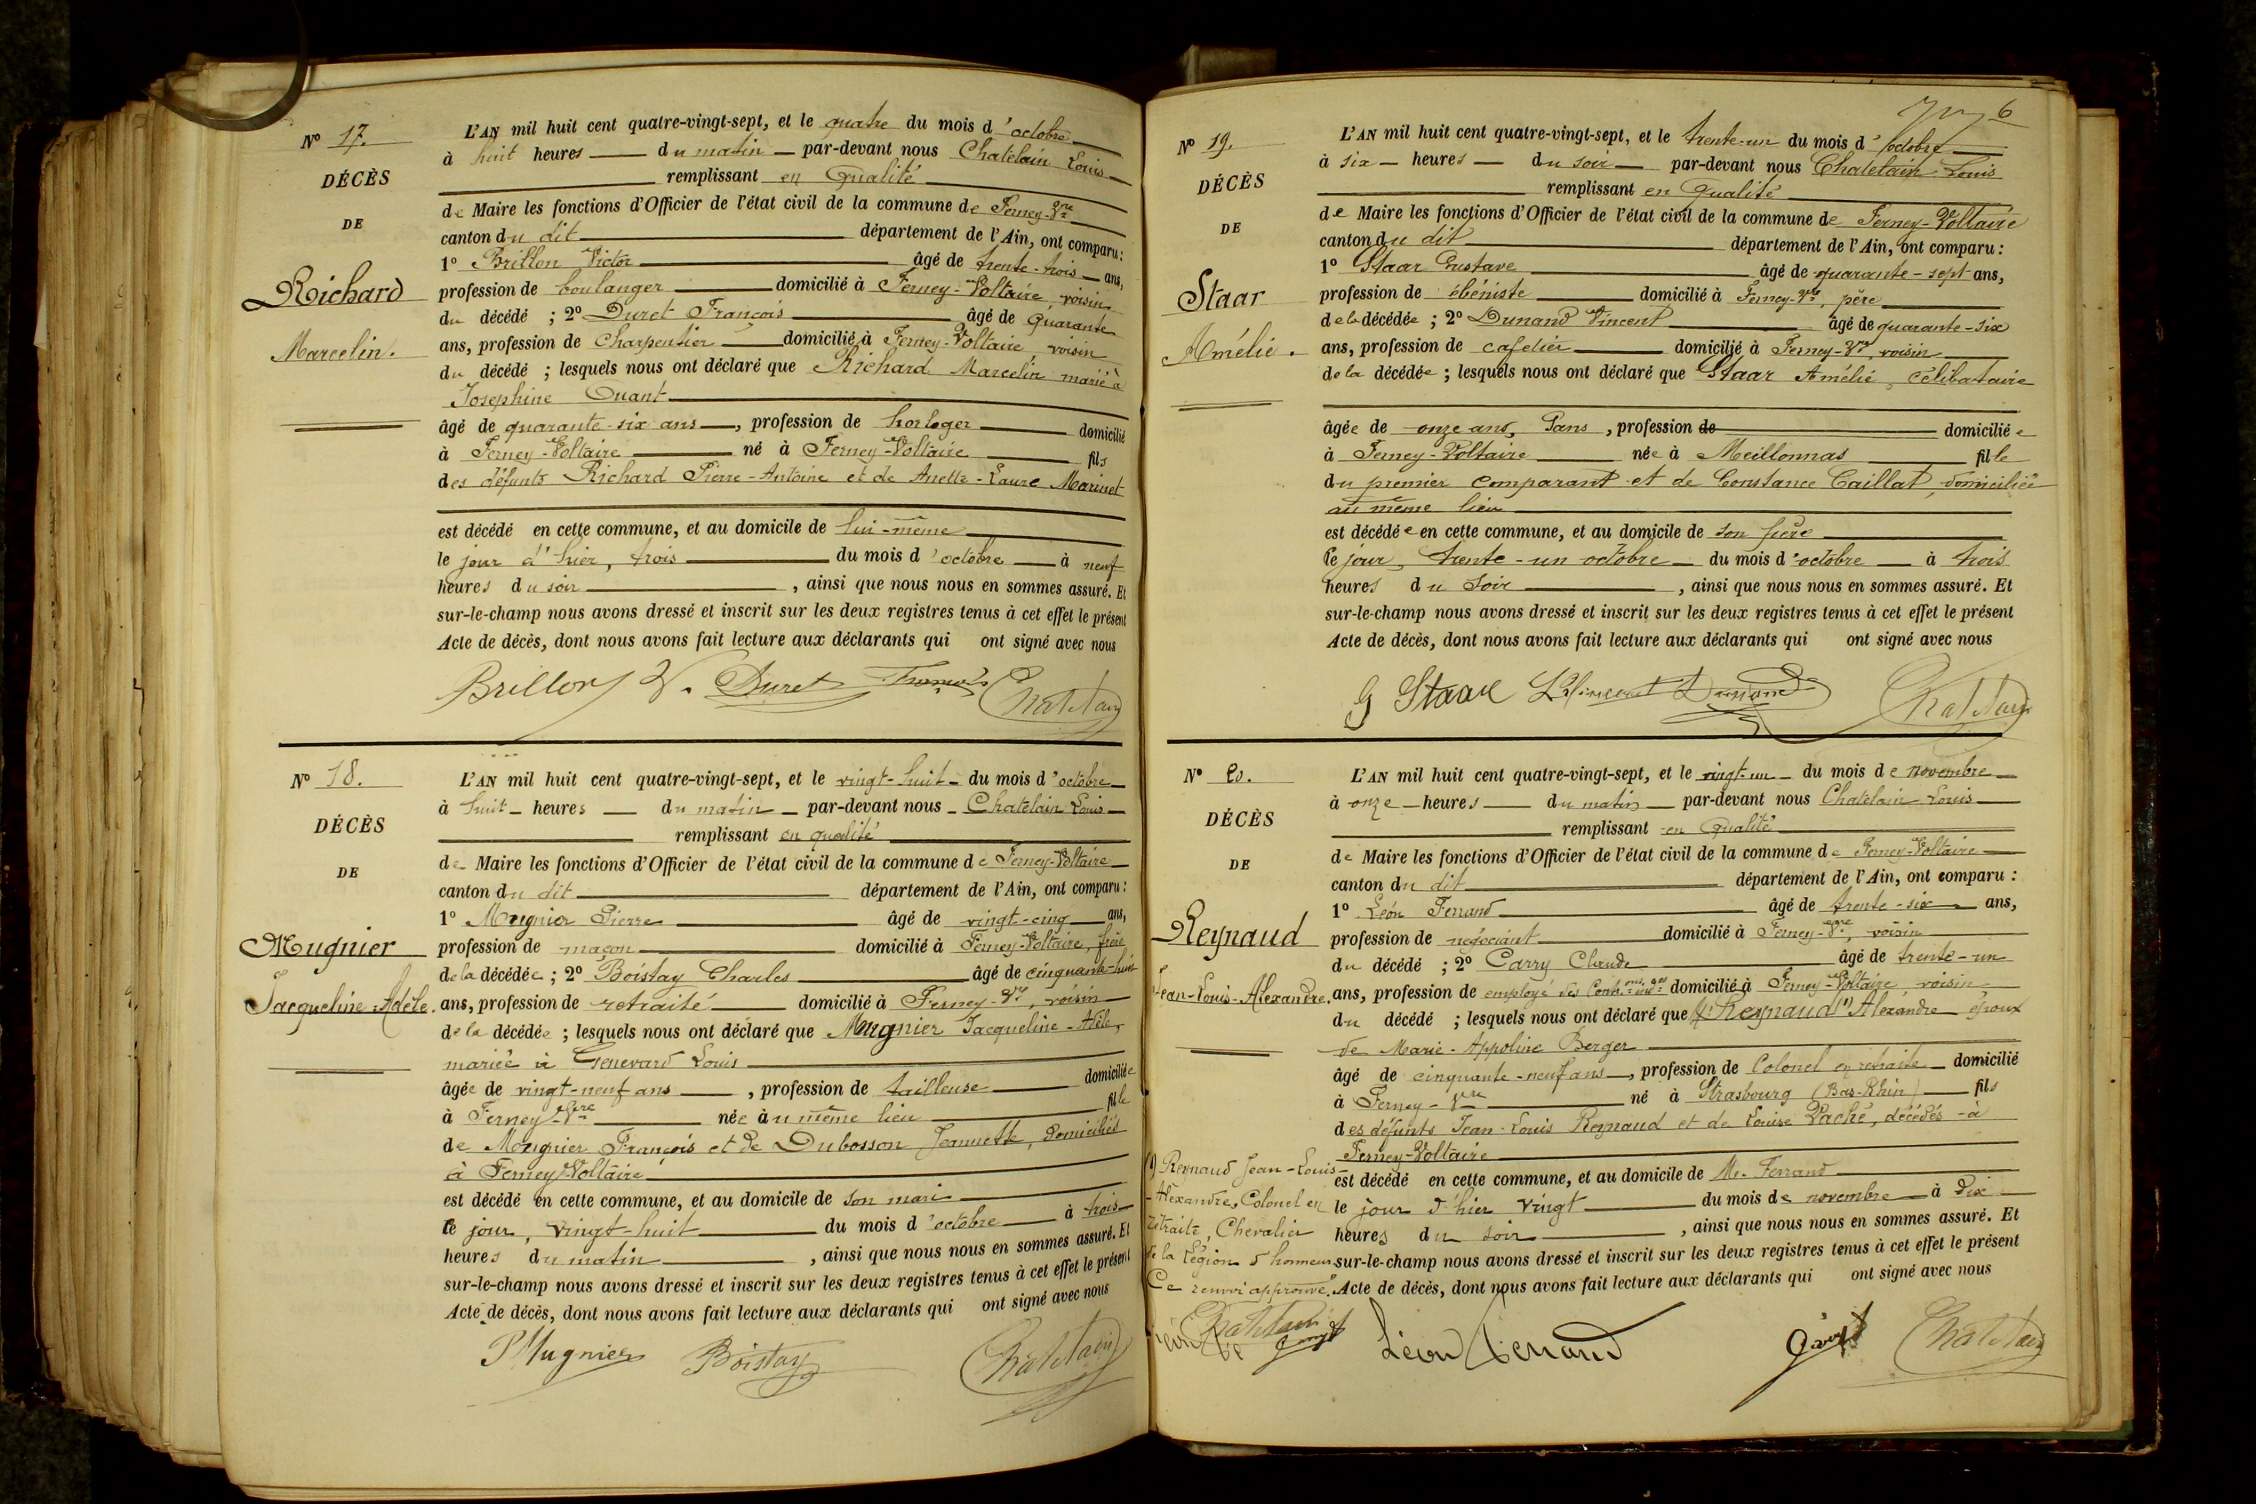 Nº 17.
DÉCÈS
DE
Richard
Marcelin.
L'AN mil huit cent quatre-vingt-sept, et le quatre du mois d'octobre
à huit heures du matin par-devant nous Chatelain Louis
remplissant en Qualité
de Maire les fonctions d'Officier de l'état civil de la commune de Ferney-Vre
canton du dit département de l'Ain, ont comparu :
1º Brillon Victor âgé de trente-trois ans,
profession de boulanger domicilié à Ferney-Voltaire, voisin
du décédé ; 2º Duret François âgé de Quarante
ans, profession de Charpentier domicilié à Ferney-Voltaire, voisin
du décédé ; lesquels nous ont déclaré que Richard Marcelin, marié à
Josephine Duant
âgé de quarante-six ans, profession de horloger domicilié
à Ferney-Voltaire né à Ferney-Voltaire fils
des défunts Richard Pierre-Antoine et de Anette-Laure Marinet
est décédé en cette commune, et au domicile de lui-même
le jour d'hier, trois du mois d'octobre à neuf
heures du soir, ainsi que nous nous en sommes assuré. Et
sur-le-champ nous avons dressé et inscrit sur les deux registres tenus à cet effet le présent
Acte de décès, dont nous avons fait lecture aux déclarants qui ont signé avec nous
Brillon V. Duret François Chatelain
Nº 18.
DÉCÈS
DE
Mugnier
Jacqueline-Adèle.
L'AN mil huit cent quatre-vingt-sept, et le vingt-huit du mois d'octobre
à huit heures du matin par-devant nous Chatelain Louis
remplissant en qualité
de Maire les fonctions d'Officier de l'état civil de la commune de Ferney-Voltaire
canton du dit département de l'Ain, ont comparu :
1º Mugnier Pierre âgé de vingt-cinq ans,
profession de maçon domicilié à Ferney-Voltaire, frère
de la décédée ; 2º Boistay Charles âgé de cinquante-huit
ans, profession de retraité domicilié à Ferney-Vre, voisin
de la décédée ; lesquels nous ont déclaré que Mugnier Jacqueline-Adèle,
mariée à Genevard Louis
âgée de vingt-neuf ans, profession de tailleuse domiciliée
à Ferney-Vre née au même lieu fille
de Mougnier François et de Dubosson Jeannette, domiciliés
à Ferney-Voltaire
est décédé en cette commune, et au domicile de son mari
le jour, vingt-huit du mois d'octobre à trois
heures du matin, ainsi que nous nous en sommes assuré. Et
sur-le-champ nous avons dressé et inscrit sur les deux registres tenus à cet effet le présent
Acte de décès, dont nous avons fait lecture aux déclarants qui ont signé avec nous
P Mugnier Boistay Chatelain
6
Nº 19.
DÉCÈS
DE
Staar
Amélie.
L'AN mil huit cent quatre-vingt-sept, et le trente-un du mois d'octobre
à six heures du soir par-devant nous Chatelain Louis
remplissant en Qualité
de Maire les fonctions d'Officier de l'état civil de la commune de Ferney-Voltaire
canton du dit département de l'Ain, ont comparu :
1º Staar Gustave âgé de quarante-sept ans,
profession de ébéniste domicilié à Ferney-Vre, père
de la décédée ; 2º Dunand Vincent âgé de quarante-six
ans, profession de cafetier domicilié à Ferney-Vre, voisin
de la décédée ; lesquels nous ont déclaré que Staar Amélie, célibataire
âgée de onze ans, sans, profession de domiciliée
à Ferney-Voltaire née à Meillonnas fille
du premier comparant et de Constance Caillat, domiciliée
au même lieu
est décédée en cette commune, et au domicile de son père
le jour, trente-un octobre du mois d'octobre à trois
heures du soir, ainsi que nous nous en sommes assuré. Et
sur-le-champ nous avons dressé et inscrit sur les deux registres tenus à cet effet le présent
Acte de décès, dont nous avons fait lecture aux déclarants qui ont signé avec nous
G Staar Vincent Dunand Chatelain
Nº 20.
DÉCÈS
DE
Reynaud
Jean-Louis-Alexandre.
L'AN mil huit cent quatre-vingt-sept, et le vingt-un du mois de novembre
à onze heures du matin par-devant nous Chatelain Louis
remplissant en Qualité
de Maire les fonctions d'Officier de l'état civil de la commune de Ferney-Voltaire
canton du dit département de l'Ain, ont comparu :
1º Léon Ferrand âgé de trente-six ans,
profession de négociant domicilié à Ferney-Vre, voisin
du décédé ; 2º Carry Claude âgé de trente-un
ans, profession de employé des Contr.ons ind.es domicilié à Ferney-Voltaire, voisin
du décédé ; lesquels nous ont déclaré que Mr Reynaud (1) Alexandre époux
de Marie-Appoline Berger
âgé de cinquante-neuf ans, profession de Colonel en retraite domicilié
à Ferney-Vre né à Strasbourg (Bas-Rhin) fils
des défunts Jean-Louis Reynaud et de Louise Vaché, décédés à
Ferney-Voltaire
est décédé en cette commune, et au domicile de Mr. Ferrand
le jour d'hier vingt du mois de novembre à dix
heures du soir, ainsi que nous nous en sommes assuré. Et
sur-le-champ nous avons dressé et inscrit sur les deux registres tenus à cet effet le présent
Acte de décès, dont nous avons fait lecture aux déclarants qui ont signé avec nous
(1) Reynaud Jean-Louis-
Alexandre, Colonel en
retraite, Chevalier
de la Légion d'honneur
Ce renvoi approuvé.
Chatelain
Léon Ferrand Chatelain